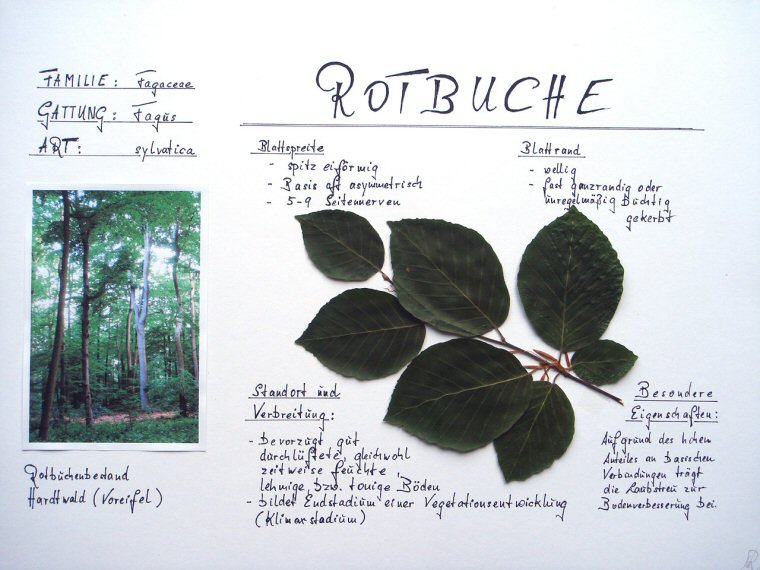 ROTBUCHE
FAMILIE: Fagaceae
GATTUNG: Fagus
ART: sylvatica
Blattspreite
- spitz eiförmig
- Basis oft asymmetrisch
- 5-9 Seitennerven
Blattrand
- wellig
- fast ganzrandig oder
unregelmäßig buchtig
gekerbt
Rotbuchenbestand
Hardtwald (Voreifel)
Standort und
Verbreitung:
- bevorzugt gut
durchlüftete, gleichwohl
zeitweise feuchte,
lehmige, bzw. tonige Böden
- bildet Endstadium einer Vegetationsentwicklung
(Klimaxstadium)
Besondere
Eigenschaften:
Aufgrund des hohen
Anteiles an basischen
Verbindungen trägt
die Laubstreu zur
Bodenverbesserung bei.